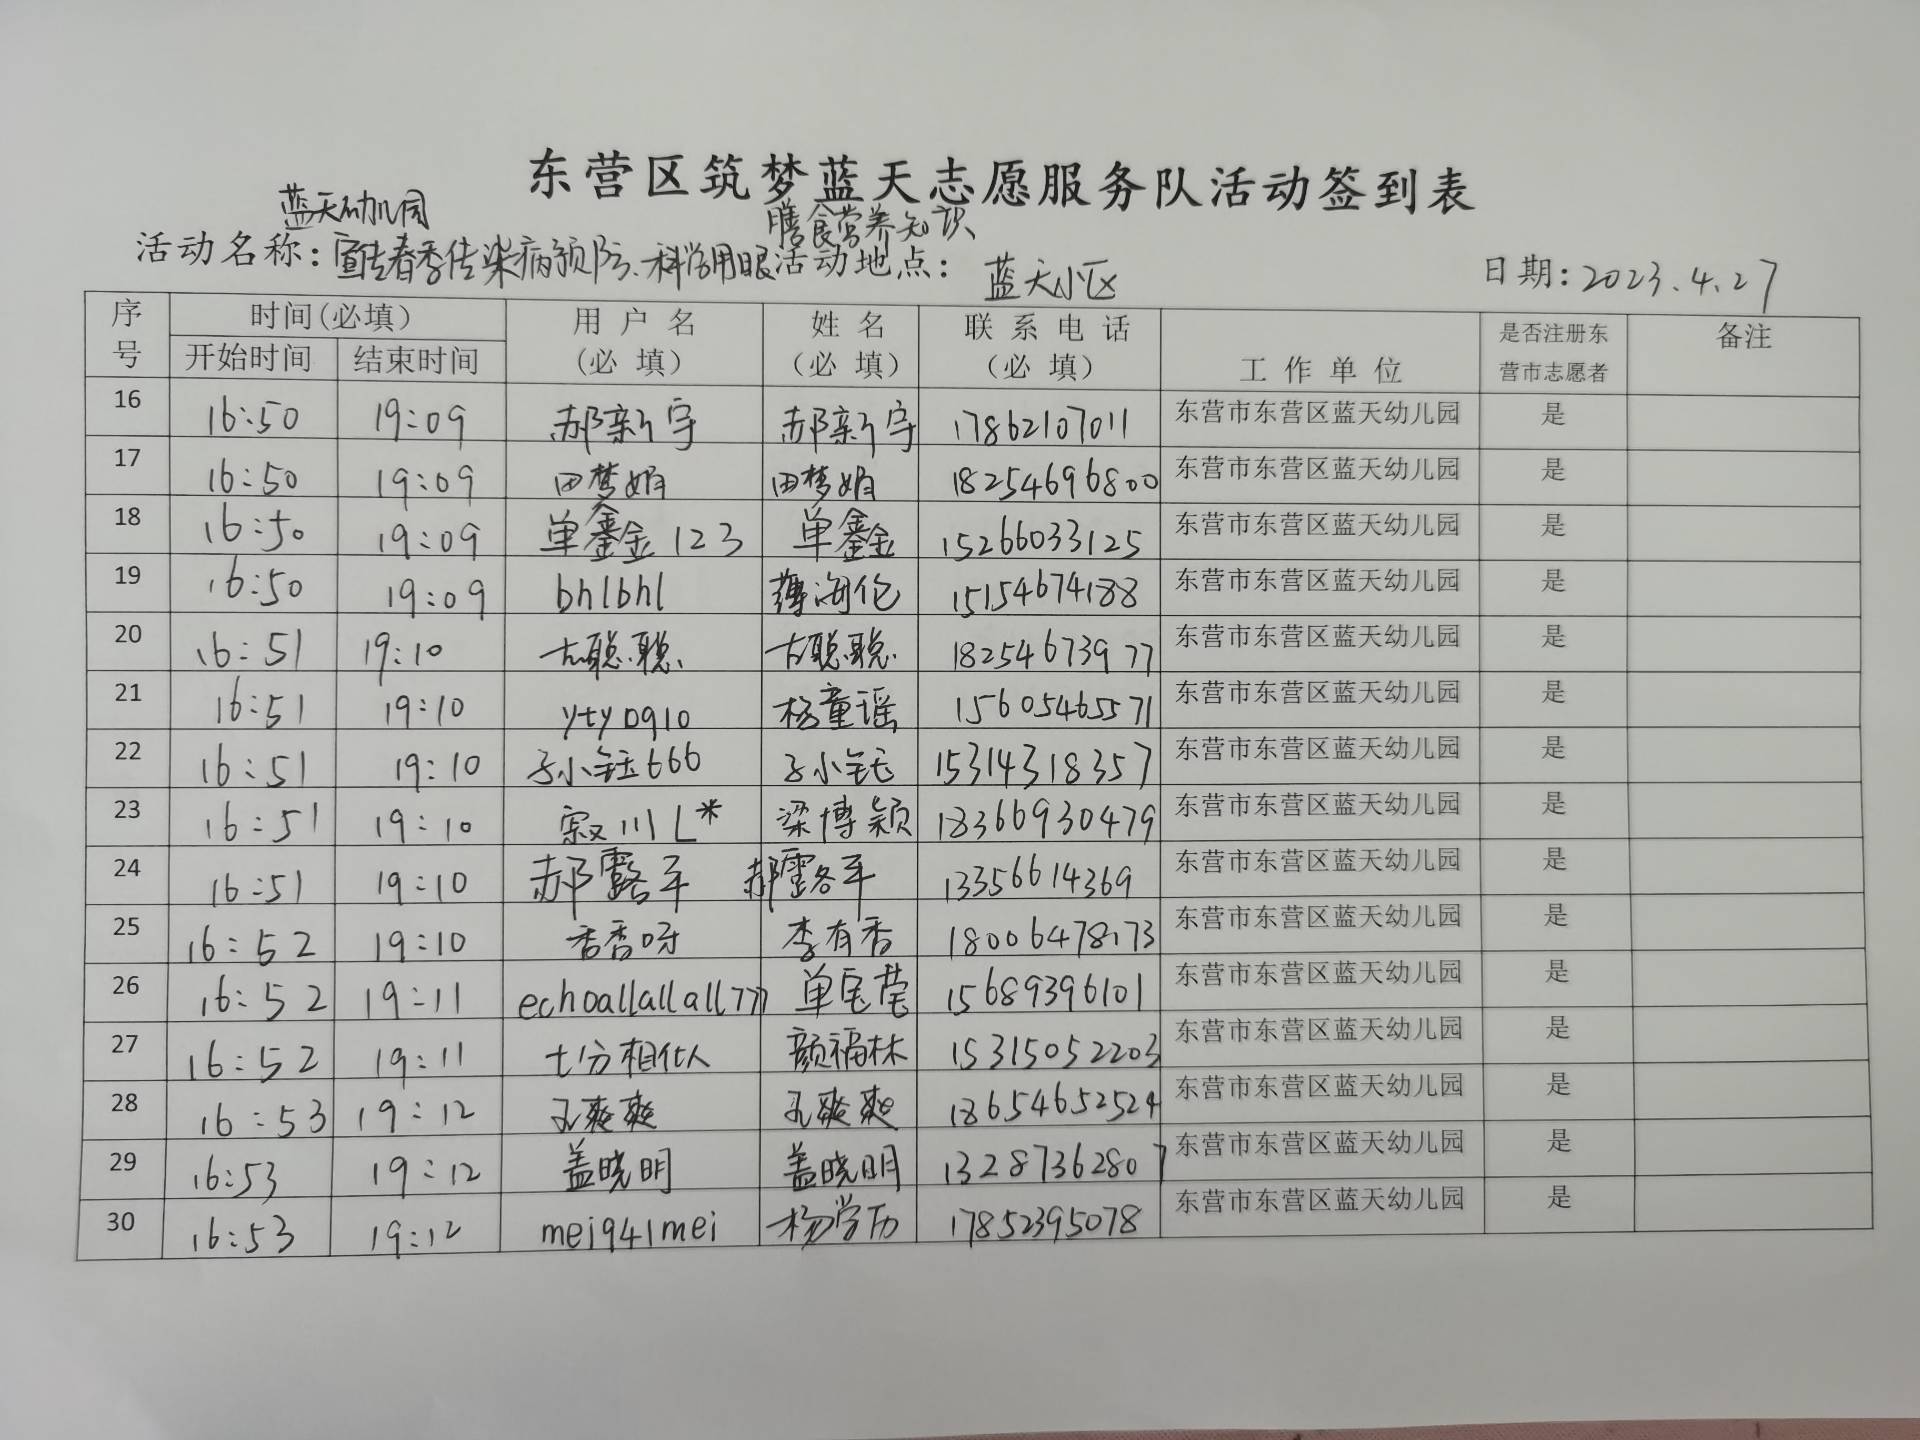 东营区筑梦蓝天志愿服务队活动签到表
蓝天幼儿园 膳食营养知识
活动名称：宣传春季传染病预防、科学用眼 活动地点：蓝天小区 日期：2023.4.27
序号 时间(必填) 用户名(必填) 姓名(必填) 联系电话(必填) 工作单位 是否注册东营市志愿者 备注
开始时间 结束时间
16 16:50 19:09 郝新宇 郝新宇 17862107011 东营市东营区蓝天幼儿园 是
17 16:50 19:09 田梦娟 田梦娟 18254696800 东营市东营区蓝天幼儿园 是
18 16:50 19:09 单鑫金123 单鑫金 15266033125 东营市东营区蓝天幼儿园 是
19 16:50 19:09 bhlbhl 薄海伦 15154674188 东营市东营区蓝天幼儿园 是
20 16:51 19:10 古聪聪 古聪聪 18254673977 东营市东营区蓝天幼儿园 是
21 16:51 19:10 yty0910 杨童谣 15605465571 东营市东营区蓝天幼儿园 是
22 16:51 19:10 小钰666 小钰 15314318357 东营市东营区蓝天幼儿园 是
23 16:51 19:10 寂川L* 梁博颖 18366930479 东营市东营区蓝天幼儿园 是
24 16:51 19:10 郝露平 郝露平 13356614369 东营市东营区蓝天幼儿园 是
25 16:52 19:10 香香呀 李有香 18006478173 东营市东营区蓝天幼儿园 是
26 16:52 19:11 echoallallall777 单宝莹 15689396101 东营市东营区蓝天幼儿园 是
27 16:52 19:11 七分相似人 颜福林 15315052203 东营市东营区蓝天幼儿园 是
28 16:53 19:12 孔爽爽 孔爽爽 18654652524 东营市东营区蓝天幼儿园 是
29 16:53 19:12 盖晓明 盖晓明 13287362807 东营市东营区蓝天幼儿园 是
30 16:53 19:12 mei941mei 杨学历 17852395078 东营市东营区蓝天幼儿园 是